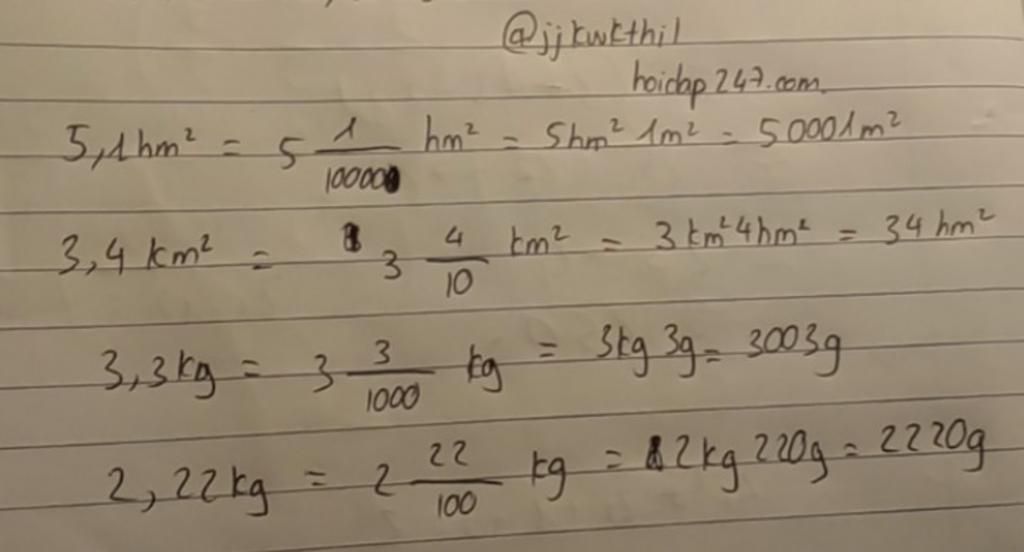 @jjkwkthil
hoidap247.com
5,1hm² = 5 1/10000 hm² = 5hm² 1m² = 50001m²
3,4 km² = 3 4/10 km² = 3km² 4hm² = 34 hm²
3,3kg = 3 3/1000 kg = 3kg 3g = 3003g
2,22kg = 2 22/100 kg = 2kg 220g = 2220g